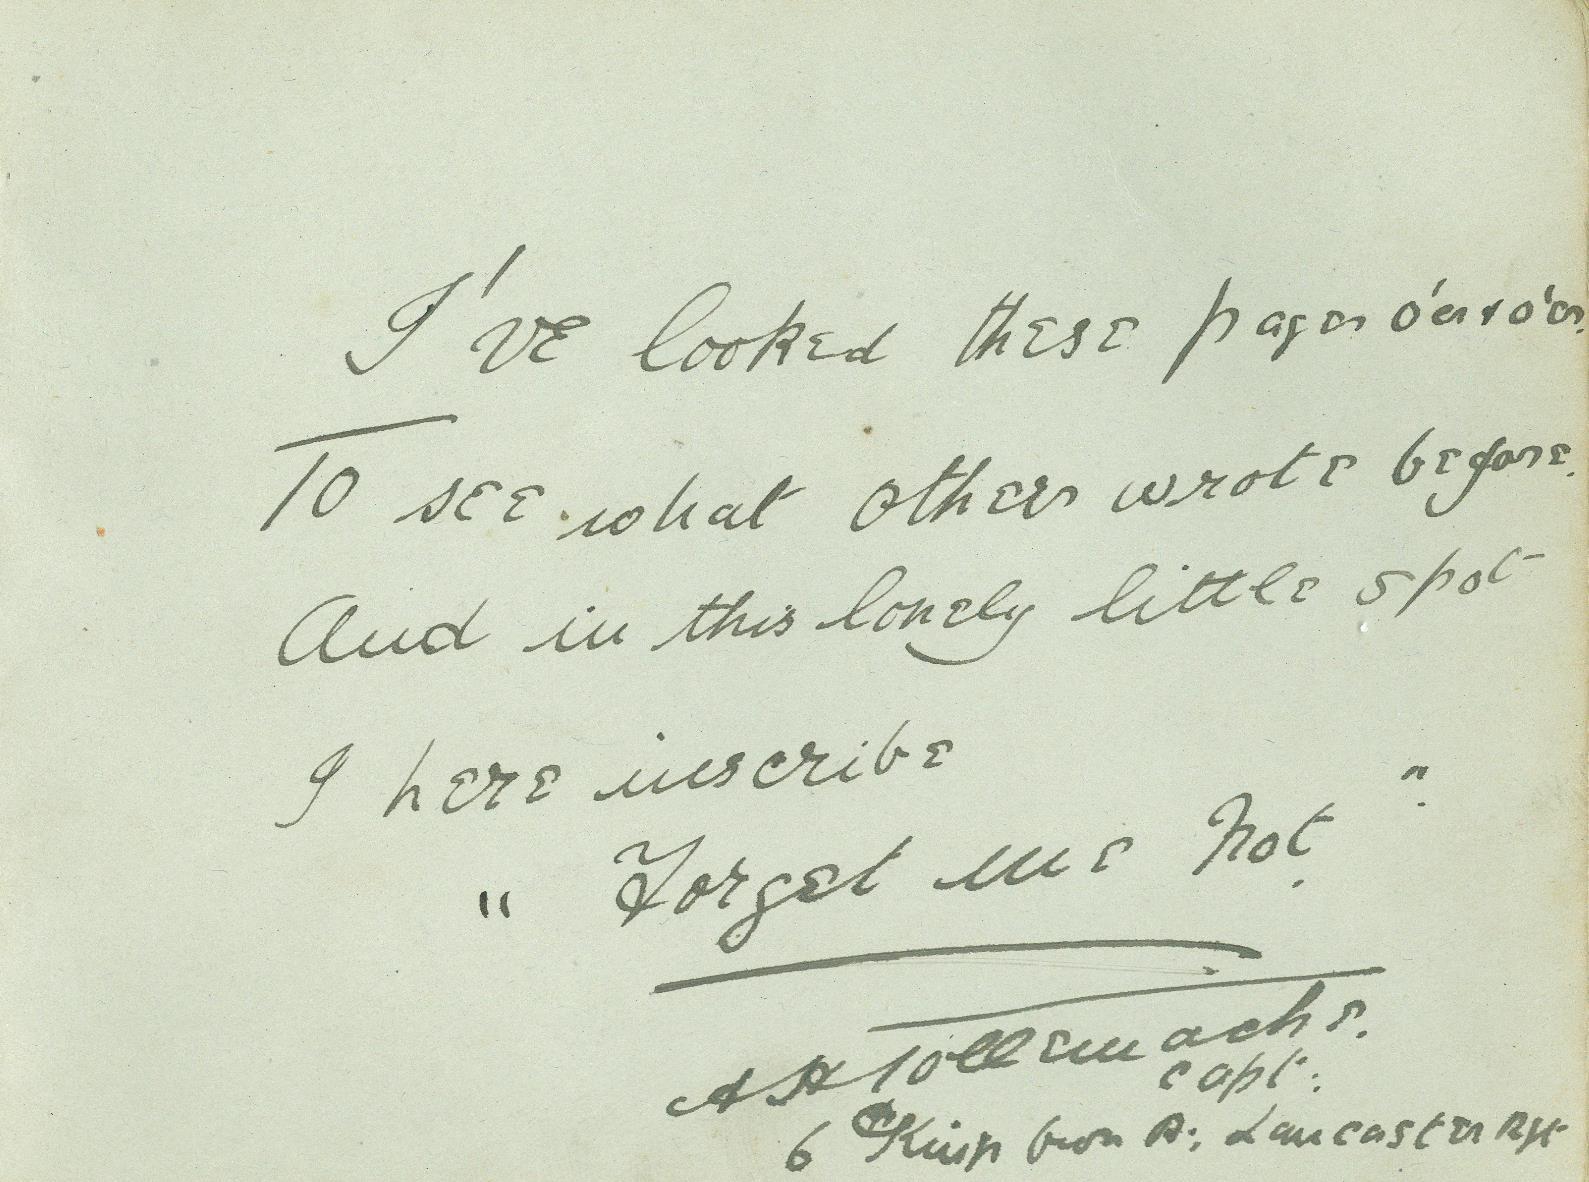 I've looked these pages o'er & o'er.
To see what others wrote before.
And in this lonely little spot
I here inscribe
" Forget me Not. "
A H Tollemache.
Capt:
6 Kings Own R: Lancaster Rgt